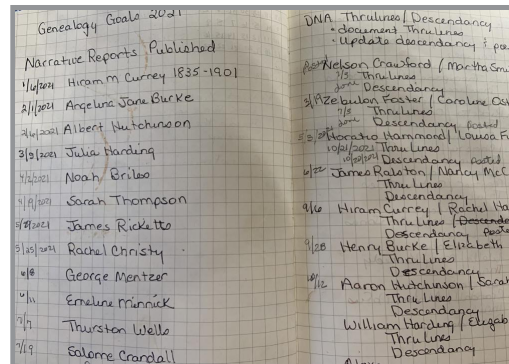 Genealogy Goals 2021
Narrative Reports Published
1/6/2021 Hiram M Currey 1835-1901
2/1/2021 Angelina Jane Burke
2/16/2021 Albert Hutchinson
3/2/2021 Julia Harding
4/2/2021 Noah Briles
4/19/2021 Sarah Thompson
5/8/2021 James Ricketts
5/25/2021 Rachel Christy
6/8 George Mentzer
6/11 Emeline Minnick
7/7 Thurston Wells
7/19 Salome Crandall
DNA Thrulines/Descendancy
• document Thrulines
• Update descendancy &
Nelson Crawford / Martha
7/5 Thrulines
done Descendancy
3/19 Zebulon Foster / Caroline
7/5 Thrulines
done Descendancy posted
Horatio Hammond / Louisa
10/21/2021 Thru Lines
10/20/2021 Descendancy posted
6/22 James Ralston / Nancy McC
Thru Lines
Descendancy
9/6 Hiram Currey / Rachel
Thru Lines
Descendancy
9/28 Henry Burke / Elizabeth
Thru Lines
Descendancy
10/12 Aaron Hutchinson / Sarah
Thru Lines
Descendancy
William Harding / Elizab
Thru Lines
Descendancy